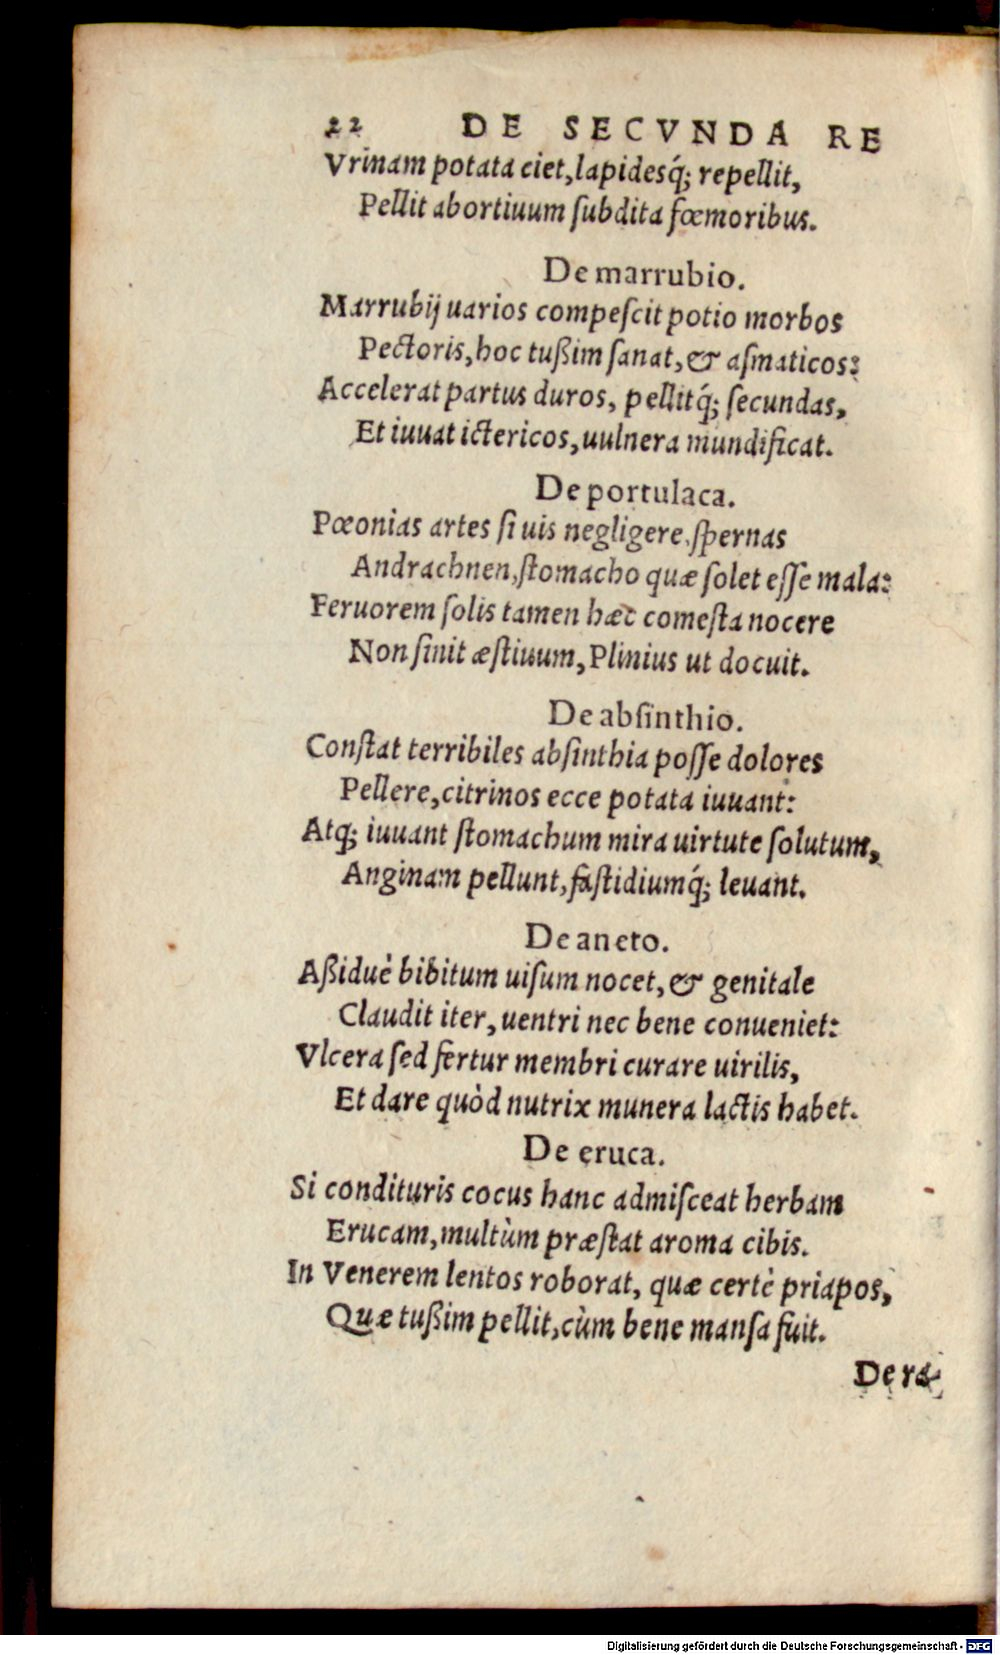 22 DE SECVNDA RE
Vrinam potata ciet, lapidesq́; repellit,
Pellit abortiuum ſubdita fœmoribus.
De marrubio.
Marrubij uarios compeſcit potio morbos
Pectoris, hoc tußim ſanat, & aſmaticos:
Accelerat partus duros, pellitq́; ſecundas,
Et iuuat ictericos, uulnera mundificat.
De portulaca.
Pœonias artes ſi uis negligere, ſpernas
Andrachnen, ſtomacho quæ ſolet eſſe mala:
Feruorem ſolis tamen hæc comeſta nocere
Non ſinit æſtiuum, Plinius ut docuit.
De abſinthio.
Conſtat terribiles abſinthia poſſe dolores
Pellere, citrinos ecce potata iuuant:
Atq; iuuant ſtomachum mira uirtute ſolutum,
Anginam pellunt, faſtidiumq́; leuant.
De aneto.
Aßiduè bibitum uiſum nocet, & genitale
Claudit iter, uentri nec bene conueniet:
Vlcera ſed fertur membri curare uirilis,
Et dare quòd nutrix munera lactis habet.
De eruca.
Si condituris cocus hanc admiſceat herbam
Erucam, multùm præſtat aroma cibis.
In Venerem lentos roborat, quæ certè priapos,
Quæ tußim pellit, cùm bene manſa fuit.
De ra-
Digitalisierung gefördert durch die Deutsche Forschungsgemeinschaft - DFG